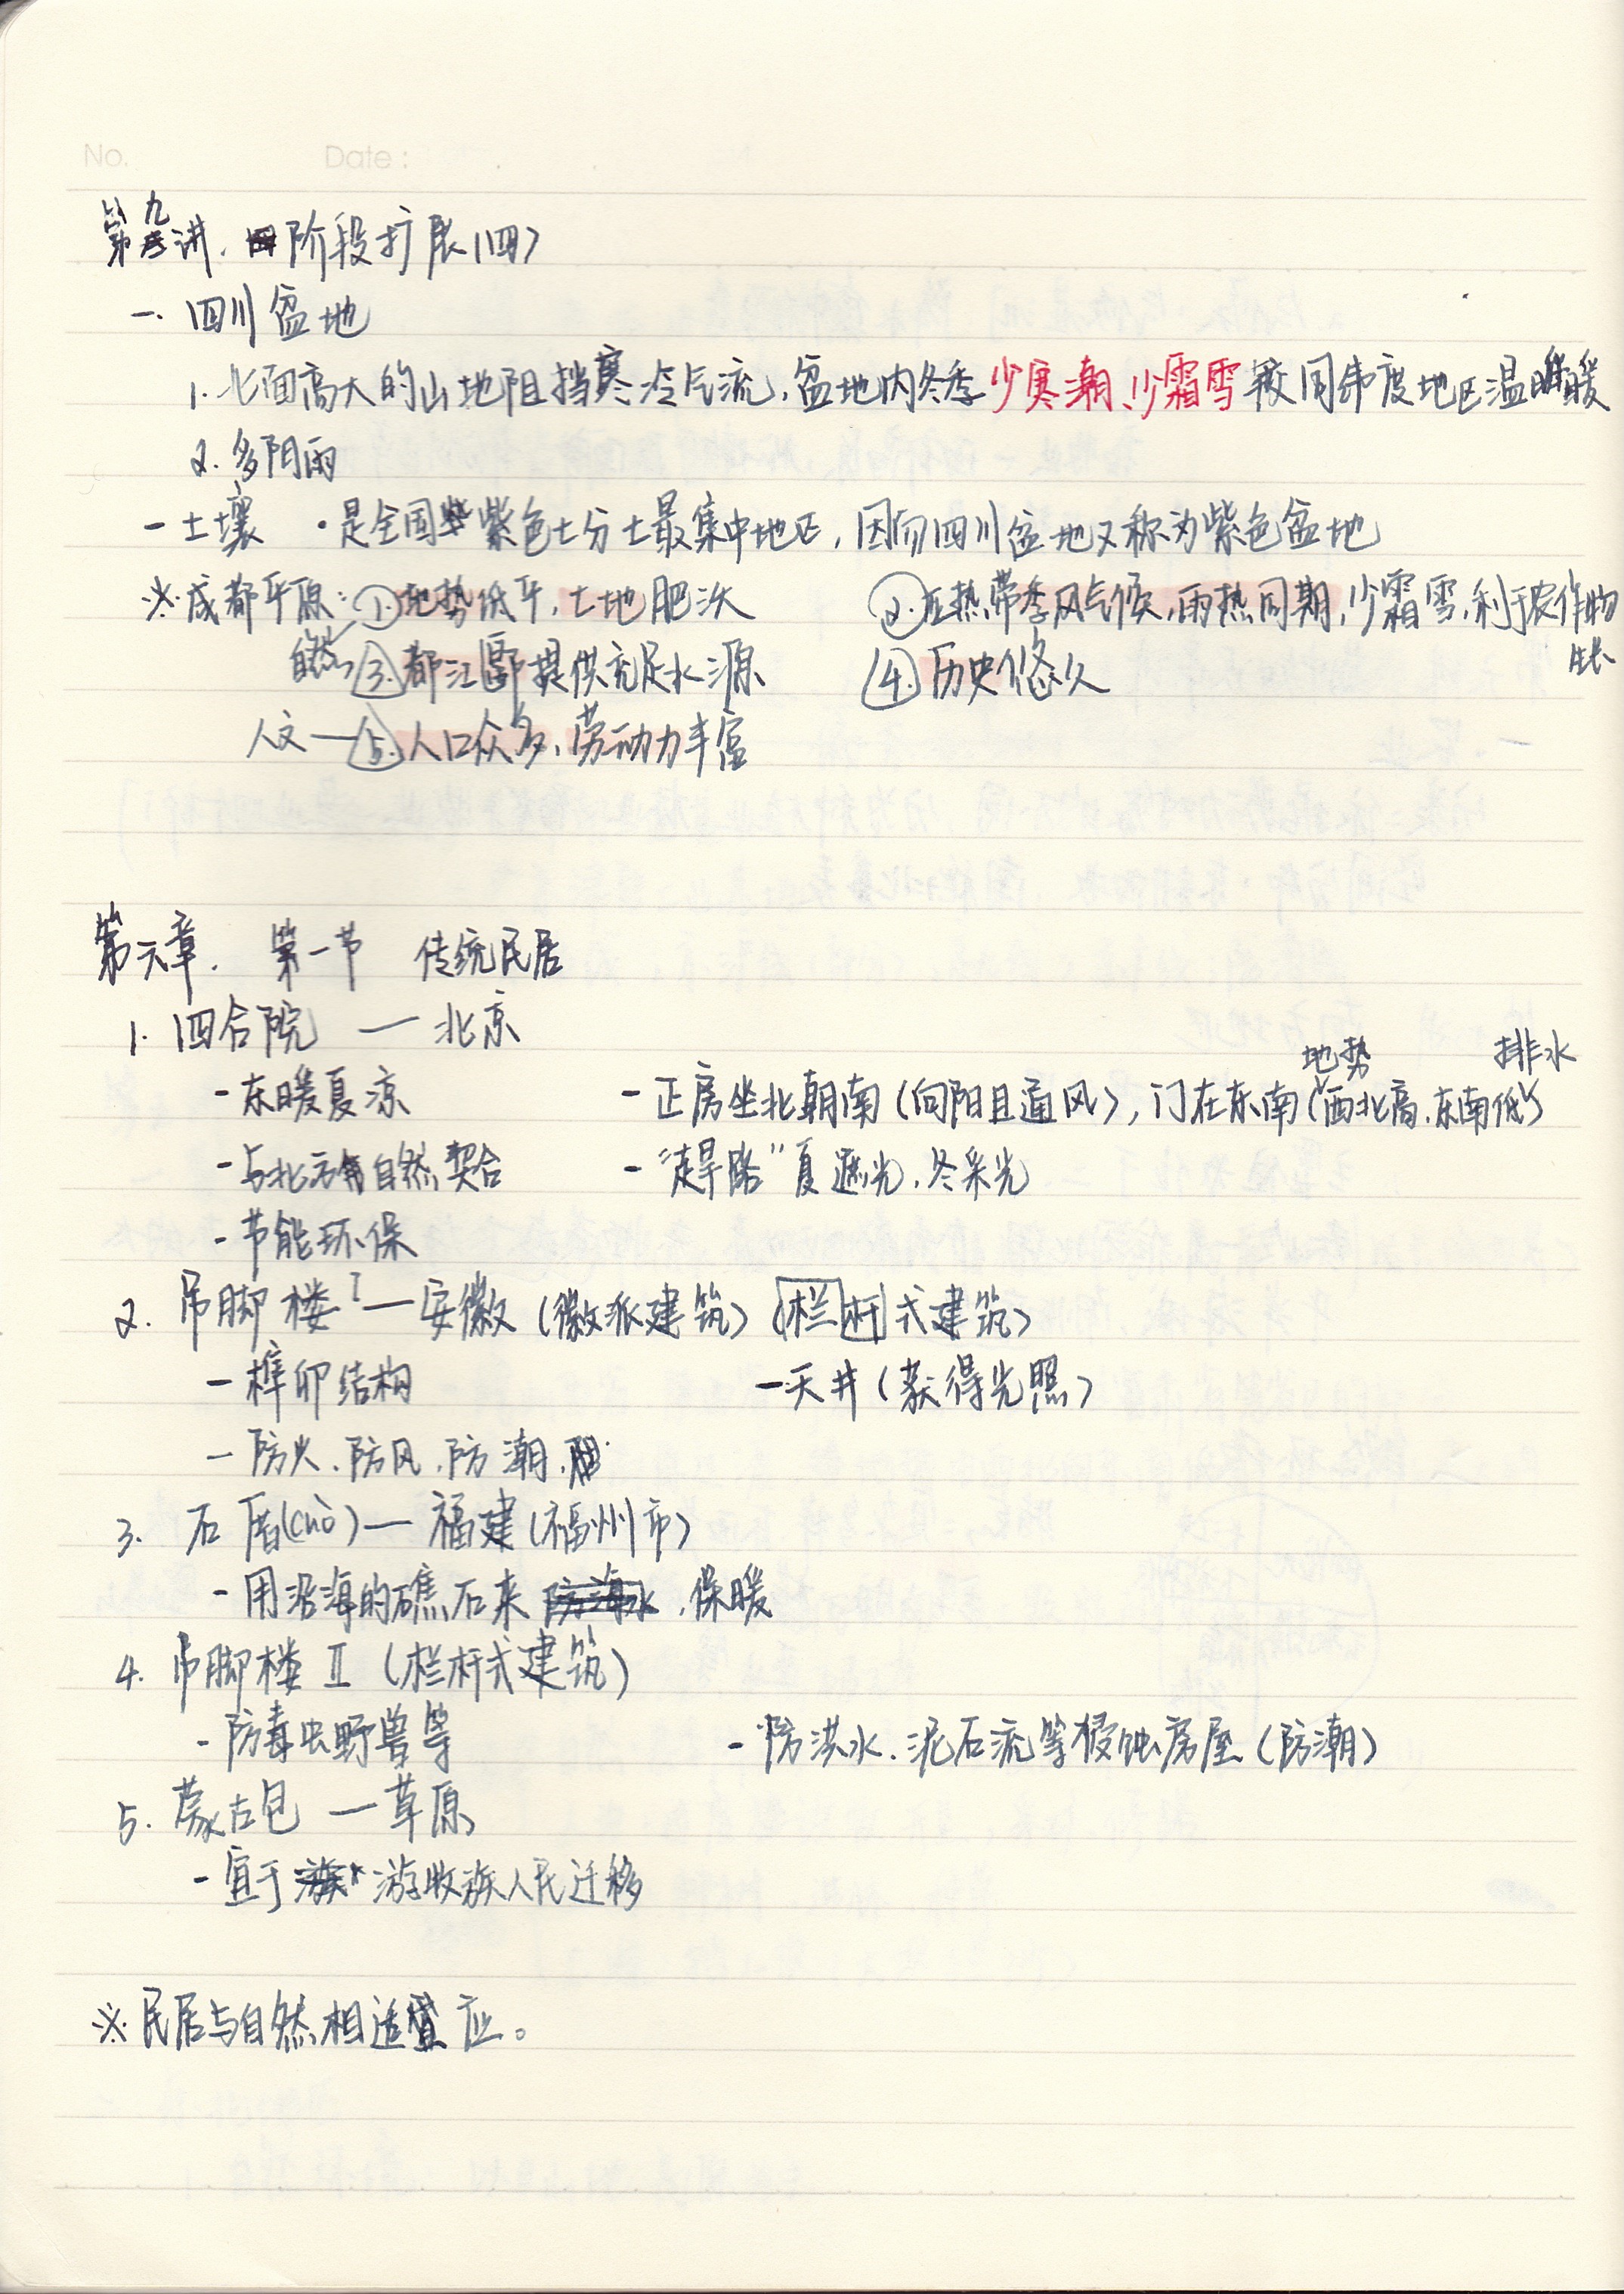 No. Date:
第九讲. 阶段扩展(四)
一. 四川盆地
1. 北面高大的山地阻挡寒冷气流, 盆地内冬季少寒潮、少霜雪 较同纬度地区温暖
2. 多阴雨
- 土壤 · 是全国紫色土分土最集中地区, 因而四川盆地又称为紫色盆地
※成都平原: ①地势低平, 土地肥沃 ②亚热带季风气候, 雨热同期, 少霜雪, 利于农作物
生长
自然 ③都江堰提供充足水源 ④历史悠久
人文—⑤人口众多, 劳动力丰富
第六章. 第一节 传统民居
1. 四合院 — 北京
地势 排水
-东暖夏凉 -正房坐北朝南(向阳且通风), 门在东南(西北高.东南低)
-与北方自然契合 - 夏遮光, 冬采光
-节能环保
2. 吊脚楼I — 安徽(徽派建筑)(栏杆式建筑)
- 榫卯结构 -天井(获得光照)
- 防火.防风.防潮.
3. 石厝(cuò) — 福建(福州市)
- 用沿海的礁石来 .保暖
4. 吊脚楼 II (栏杆式建筑)
-防毒虫野兽等 -防洪水.泥石流等侵蚀房屋(防潮)
5. 蒙古包 — 草原
-宜于 游牧族人民迁移
※民居与自然相适应。